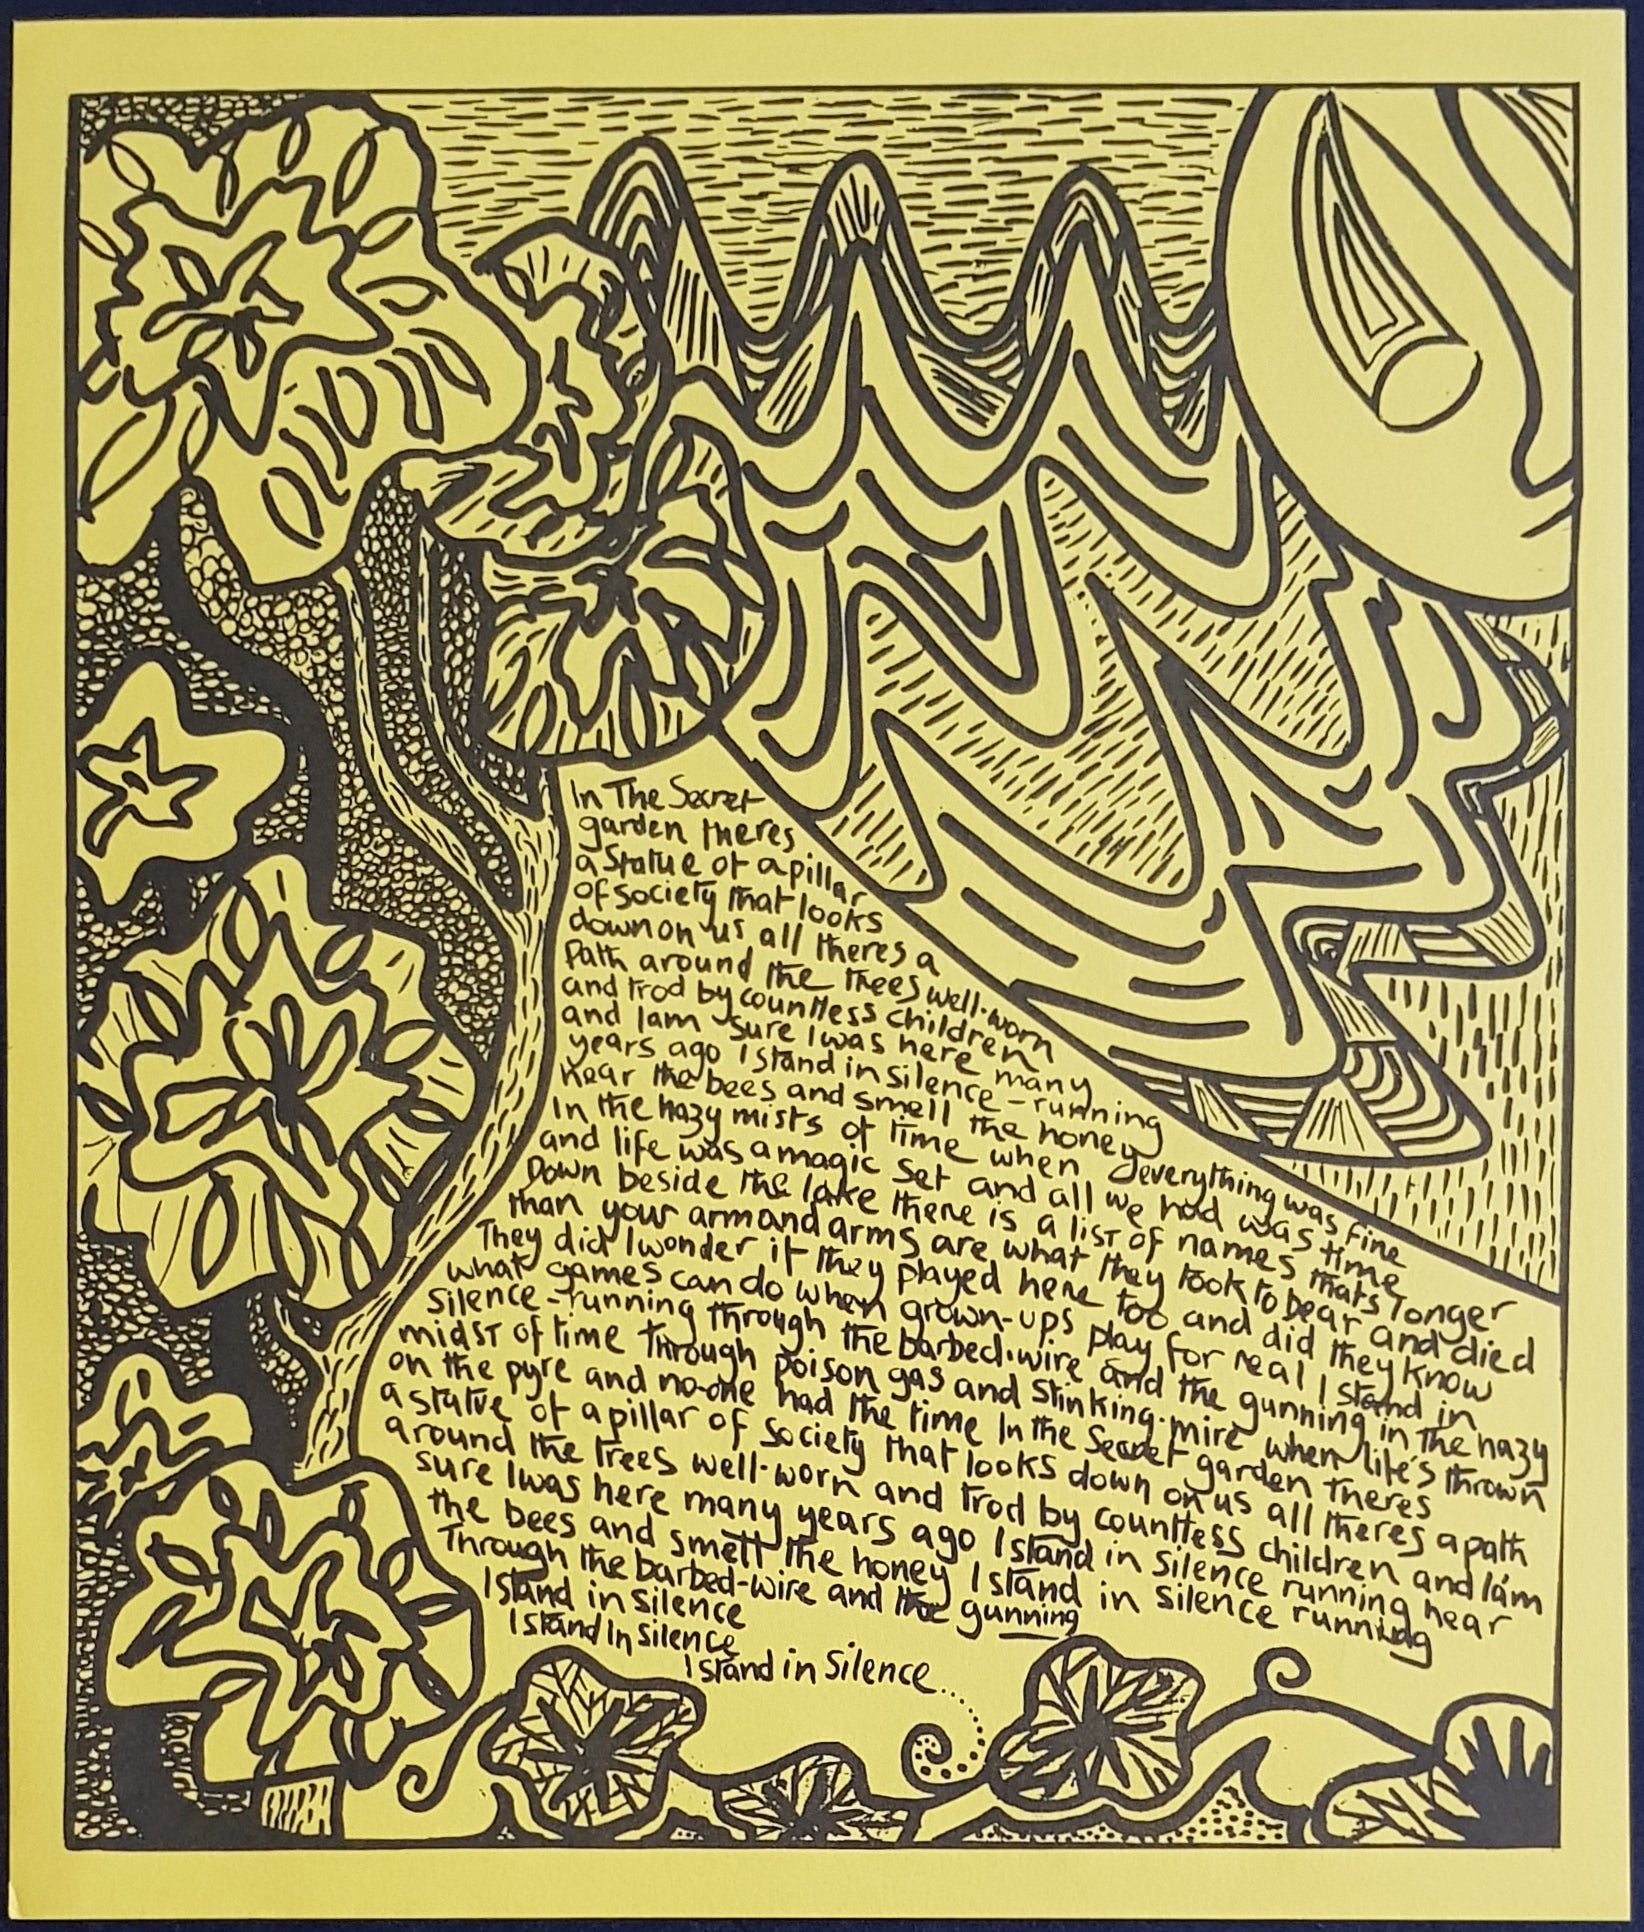 In The Secret
garden theres
a Statue of a pillar
of society that looks
down on us all theres a
Path around the trees well-worn
and trod by countless children
and I am sure I was here many
years ago I stand in silence - running
hear the bees and smell the honey
In the hazy mists of time when everything was fine
and life was a magic set and all we had was time
Down beside the lake there is a list of names thats longer
than your arm and arms are what they took to bear and died
They did I wonder if they played here too and did they know
what games can do when grown-ups play for real I stand in
silence - running through the barbed-wire and the gunning in the hazy
midst of time through poison gas and stinking-mire when life's thrown
on the pyre and no-one had the time In the Secret garden theres
a statue of a pillar of society that looks down on us all theres a path
around the trees well-worn and trod by countless children and I am
sure I was here many years ago I stand in silence running hear
the bees and smell the honey I stand in silence running
Through the barbed-wire and the gunning
I stand in silence
I stand in silence
I stand in silence...